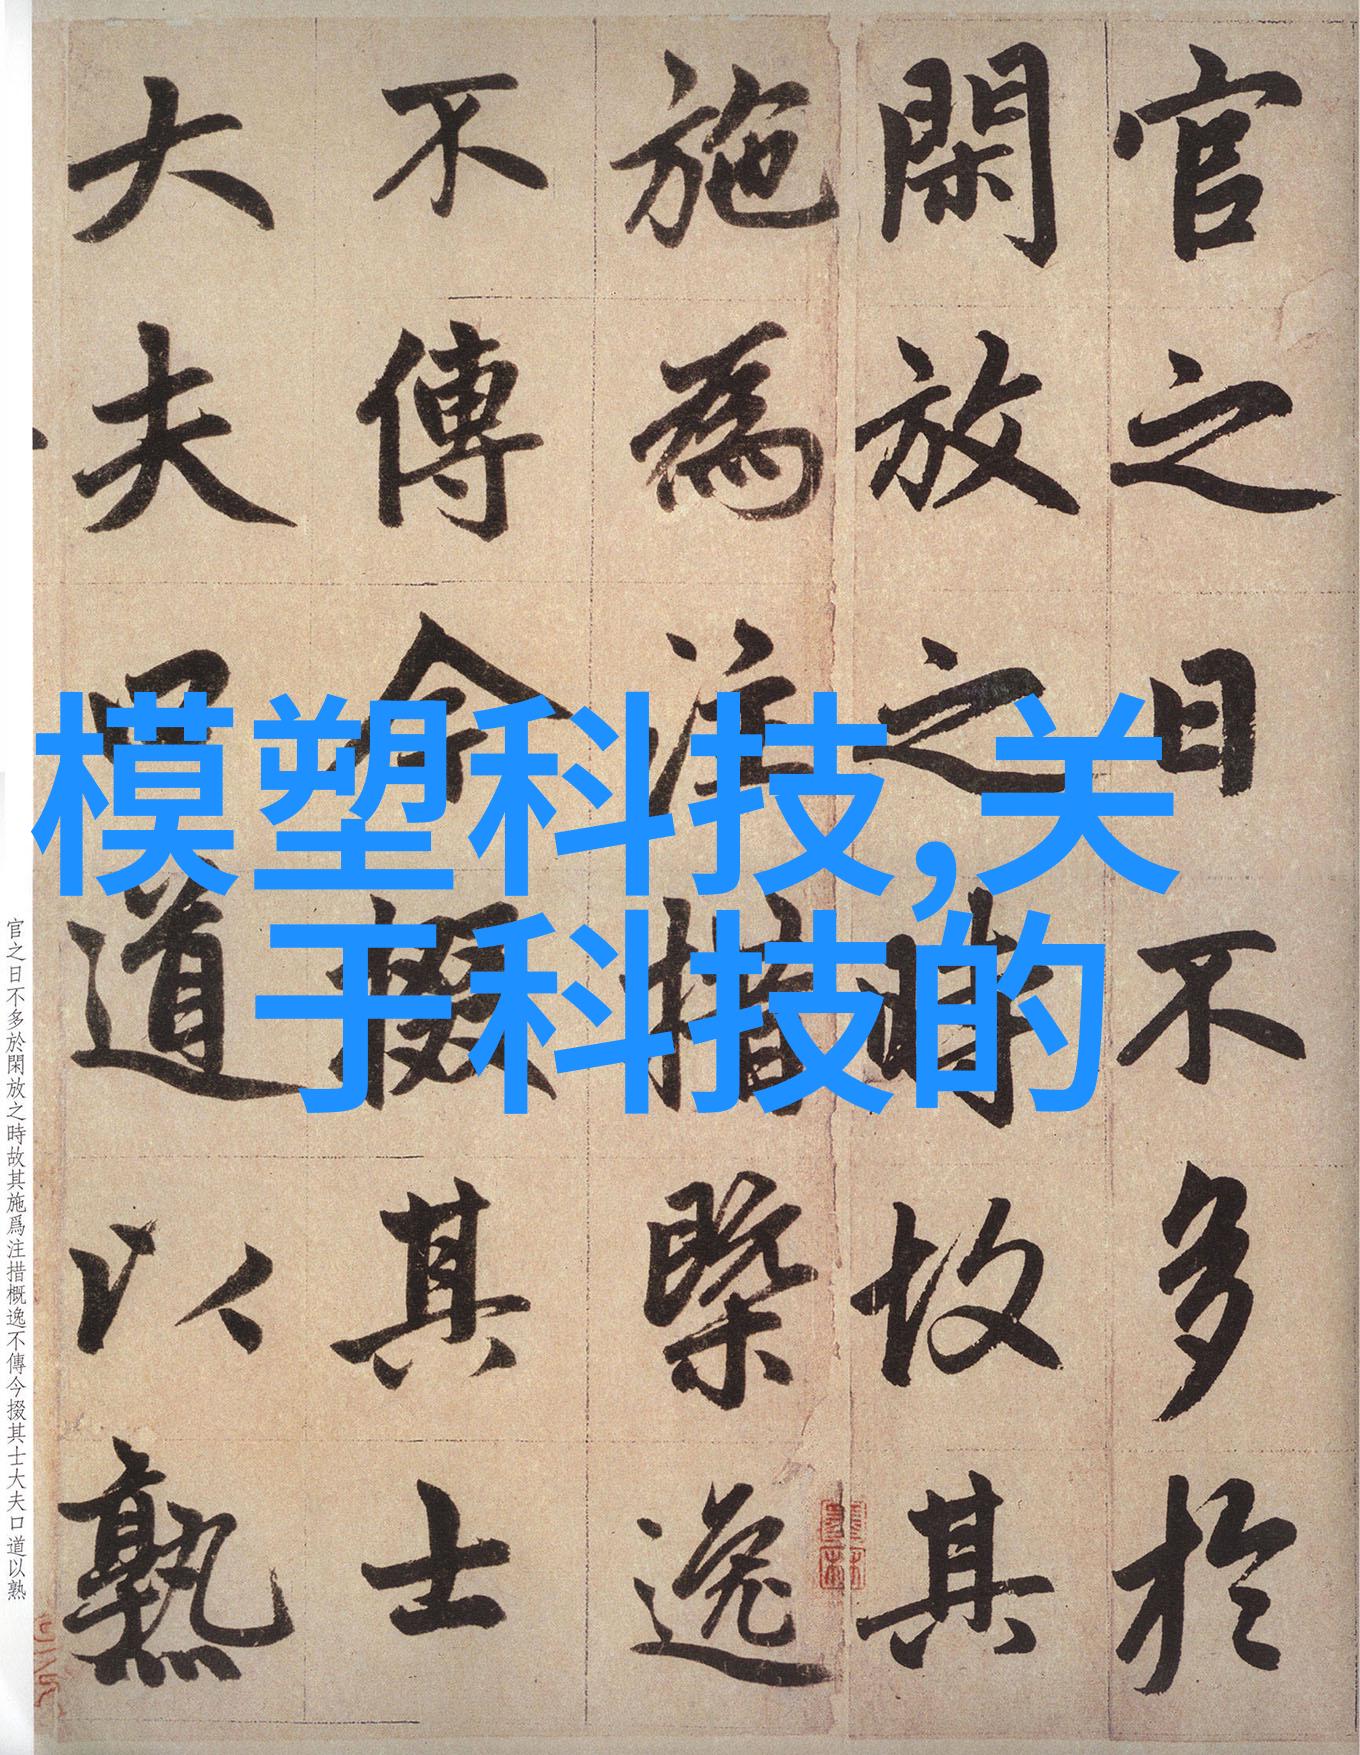 官之日不多於
閑放之時故其
施為注措槩逸
不傳今掇其士
大夫口道以熟
模塑科技,关
于科技的
官之日不多於閑放之時故其施爲注措概逸不傳今掇其士大夫口道以熟